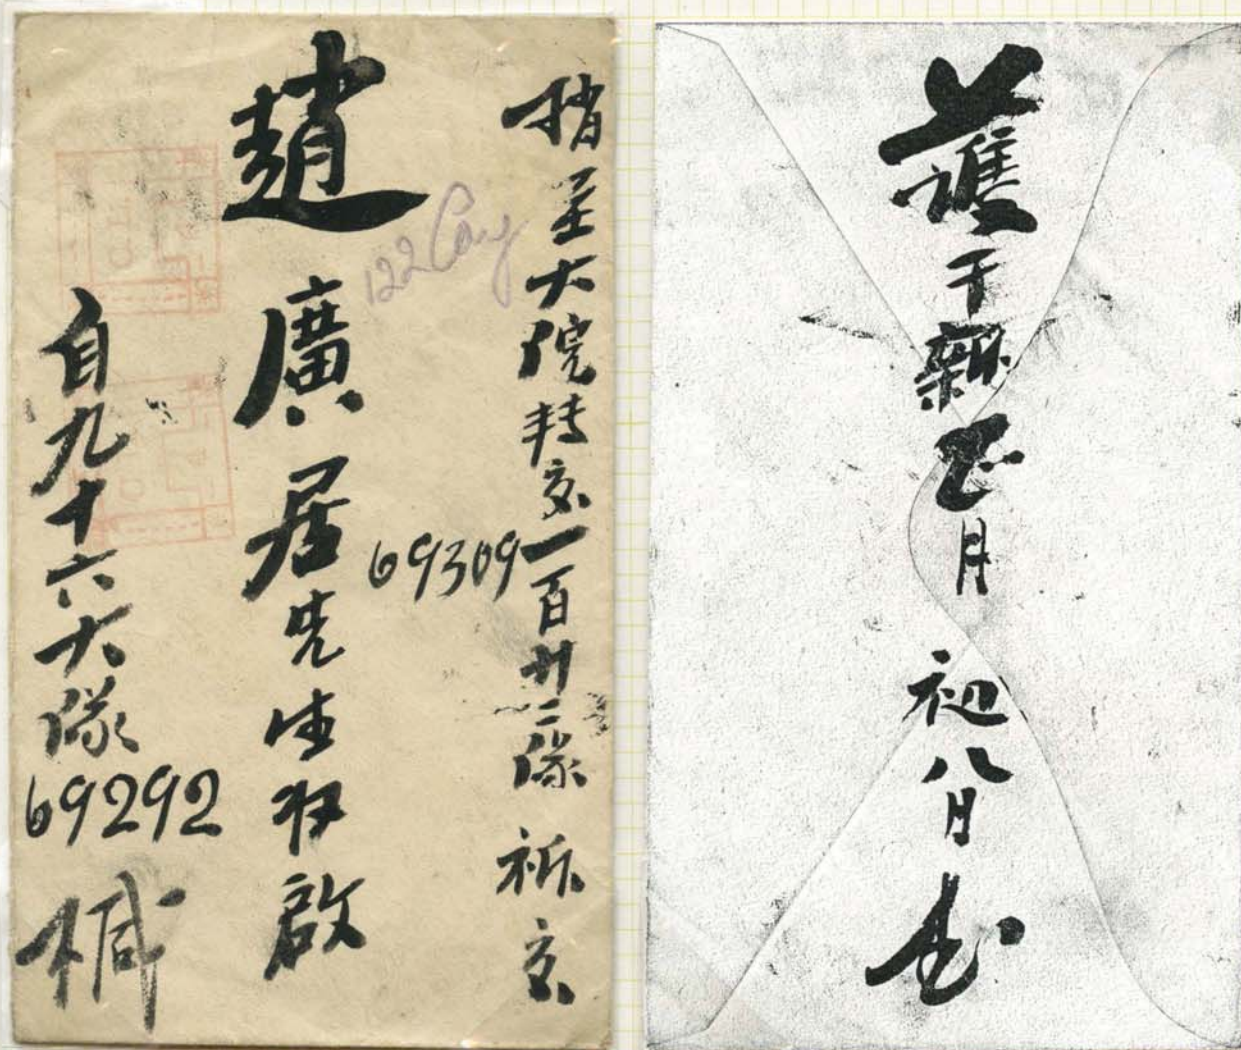 捎至大院轉交一百廿二隊 祈交
122 Coy
69309
趙廣居先生收啟
自九十六大隊
69292
椷
護于新正月
初八日